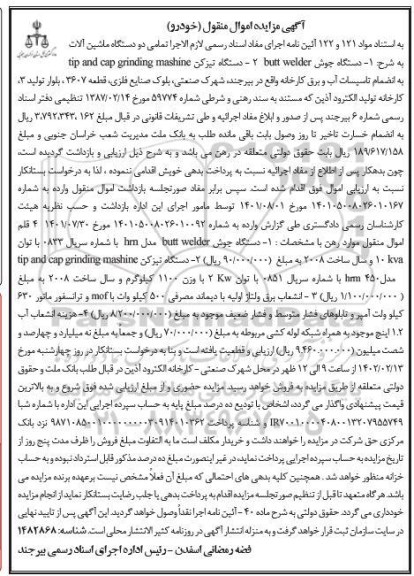 آگهی مزایده اموال منقول (خودرو)
به استناد مواد ۱۲۱ و ۱۲۲ آئین نامه اجرای مفاد اسناد رسمی لازم الاجرا تمامی دو دستگاه ماشین آلات
به شرح: ۱- دستگاه جوش butt welder ۲ - دستگاه تیزکن tip and cap grinding mashine
به انضمام تاسیسات آب و برق کارخانه واقع در بیرجند، شهرک صنعتی، بلوک صنایع فلزی، قطعه ۳۶۰۷، بلوار تولید ۳،
کارخانه تولید الکترود آذین که مستند به سند رهنی و شرطی شماره ۵۹۷۷۴ مورخ ۱۳۸۷/۰۲/۱۴ تنظیمی دفتر اسناد
رسمی شماره ۶ بیرجند پس از صدور و ابلاغ مفاد اجرائیه و طی تشریفات قانونی در قبال مبلغ ۳،۷۹۲،۳۴۳،۱۶۲ ریال
به انضمام خسارت تاخیر تا روز وصول بابت باقی مانده طلب به بانک ملت مدیریت شعب خراسان جنوبی و مبلغ
۱۸۹/۶۱۷/۱۵۸ ریال بابت حقوق دولتی متعلقه در رهن می باشد و به شرح ذیل ارزیابی و بازداشت گردیده است،
چون بدهکار پس از اطلاع از مفاد اجرائیه نسبت به پرداخت بدهی خویش اقدامی ننموده ، لذا به درخواست بستانکار
نسبت به ارزیابی اموال فوق اقدام شده است. سپس برابر مفاد صورتجلسه بازداشت اموال منقول وارده به شماره
۱۴۰۱۰۵۰۰۸۰۲۶۰۱۰۱۶۷ مورخ ۱۴۰۱/۰۸/۰۱ توسط مامور اجرای این اداره بازداشت و حسب نظریه هیئت
کارشناسان رسمی دادگستری طی گزارش وارده به شماره ۱۴۰۱۰۵۰۰۸۰۲۶۰۱۰۰۹۲ مورخ ۱۴۰۱/۰۷/۳۰ ۴ قلم
اموال منقول موارد رهن با مشخصات : ۱- دستگاه جوش butt welder مدل hrn با شماره سریال ۰۸۳۳ با توان
۱۰ kva و سال ساخت ۲۰۰۸ به مبلغ (۹۰/۰۰۰/۰۰۰ ریال) ۲- دستگاه تیزکن tip and cap grinding mashine
مدل hrm ۴۵۰ با شماره سریال ۰۸۵۱ با توان ۲ Kw با وزن ۱۱۰۰ کیلوگرم و سال ساخت ۲۰۰۸ به مبلغ
(۱/۱۰۰/۰۰۰/۰۰۰ ریال) ۳ - انشعاب برق ولتاژ اولیه با دیماند مصرفی ۵۰۰ کیلو وات با mof و ترانسفور ماتور ۶۳۰
کیلو ولت آمپر و تابلوهای فشار متوسط و فشار ضعیف موجود به مبلغ (۸/۲۰۰/۰۰۰/۰۰۰ ریال) ۴- هزینه انشعاب آب
۱.۲ اینچ موجود به همراه شبکه لوله کشی مربوطه به مبلغ (۷۰/۰۰۰/۰۰۰ ریال) و جمعا به مبلغ نه میلیارد و چهارصد و
شصت میلیون (۹.۴۶۰.۰۰۰.۰۰۰ ریال) ارزیابی و قطعیت یافته است و بنا به درخواست بستانکار در روز چهارشنبه مورخ
۱۴۰۲/۰۲/۱۳ از ساعت ۹ الی ۱۲ ظهر در محل شهرک صنعتی - کارخانه الکترود آذین در قبال طلب بانک ملت و حقوق
دولتی متعلقه از طریق مزایده به فروش خواهد رسید. مزایده حضوری و از مبلغ ارزیابی شده فوق شروع و به بالاترین
قیمت پیشنهادی واگذار می گردد، اشخاص با تودیع ده درصد مبلغ پایه به حساب سپرده اجرایی این اداره با شماره شبا
نزد بانک
مرکزی حق شرکت در مزایده را خواهند داشت و خریدار مکلف است ما به التفاوت مبلغ فروش را ظرف مدت پنج روز از
تاریخ مزایده به حساب سپرده اجرایی پرداخت نماید، در غیر اینصورت مبلغ ده درصد مذکور قابل استرداد نبوده و به حساب
خزانه منظور خواهد شد . همچنین کلیه بدهی های احتمالی که مبلغ آن فعلاً مشخص نیست برعهده برنده مزایده می
باشد. هرگاه متعهد تا قبل از تنظیم صورتجلسه مزایده اقدام به پرداخت بدهی یا جلب رضایت بستانکار نماید از انجام مزایده
خودداری می گردد. حقوق دولتی به شرح ماده ۴۰ - آئین نامه اجرا نقداً وصول خواهد گردید. این آگهی پس از تایید نهایی
در سایت سازمان ثبت قرار خواهد گرفت و به منزله انتشار آگهی در روزنامه کثیر الانتشار محلی است. شناسه: ۱۴۸۲۸۶۸
فضه رمضانی اسفدن - رئیس اداره اجرای اسناد رسمی بیرجند